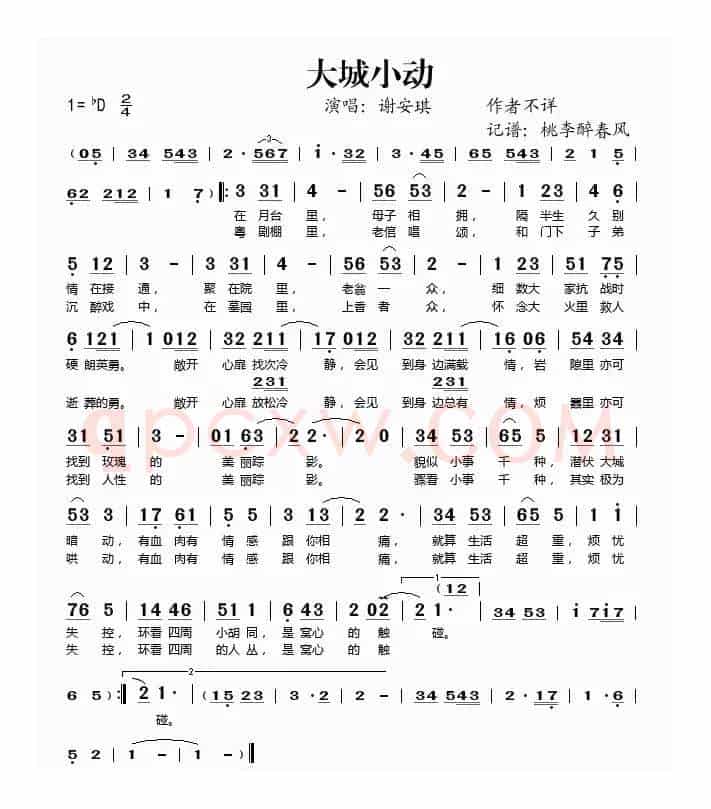 大城小动
1=♭D 2/4 演唱：谢安琪 作者不详
记谱：桃李醉春风
(05 | 34 543 | 2· 567 | i· 32 | 3· 45 | 65 543 | 2 1 5 |
62 212 | 1 7) |: 3 31 | 4 - | 56 53 | 2 - | 1 23 | 4 6 |
在 月台 里， 母子 相 拥， 隔 半生 久 别
粤 剧棚 里， 老倌 唱 颂， 和 门下 子 弟
5 12 | 3 - | 3 31 | 4 - | 56 53 | 2 - | 1 23 | 51 75 |
情 在接 通， 聚 在院 里， 老翁 一 众， 细 数大 家抗 战时
沉 醉戏 中， 在 墓园 里， 上香 者 众， 怀 念大 火里 救人
6 121 | 1 012 | 32 211 | 17 012 | 32 211 | 16 06 | 54 34 |
硬 朗英勇。 敞开 心扉 找次冷 静，会见 到身 边满载 情，岩 隙里 亦可
231 231
逝 葬的勇。 敞开 心扉 放松冷 静，会见 到身 边总有 情，烦 嚣里 亦可
qpcxw.com
31 51 | 3 - | 01 63 | 2 2· | 2 0 | 34 53 | 65 5 | 12 31 |
找到 玫瑰 的 美 丽踪 影。 貌似 小事 千 种，潜伏 大城
找到 人性 的 美 丽踪 影。 骤看 小事 千 种，其实 极为
53 3 | 17 61 | 5 5 | 3 13 | 2 2· | 34 53 | 65 5 | 1 i |
暗 动，有血 肉有 情 感 跟 你相 痛， 就算 生活 超 重，烦 忧
哄 动，有血 肉有 情 感 跟 你相 痛， 就算 生活 超 重，烦 忧
1
(12
76 5 | 14 46 | 51 1 | 6 43 | 2 02 | 2 1· | 34 53 | i 7i7 |
失 控，环看 四周 小胡 同，是 窝心 的 触 碰。
失 控，环看 四周 的人 丛，是 窝心 的 触
2
6 5) :| 2 1· | (15 23 | 3 ·2 | 2 - | 34 543 | 2· 17 | 1 ·6 |
碰。
5 2 | 1 - | 1 -) |